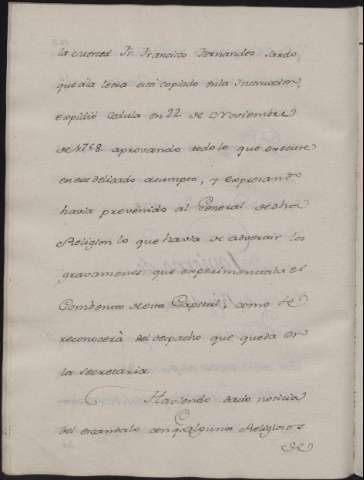 la cuerda Fr. Francisco Fernandez Sardo,
que à la letra está copiado en la Instruccion,
expidiò Cedula en 22 de Noviembre
de 1758 aprovando todo lo que executè
en este delicado asumpto, y expresando
havia prevenido al General de dha
Religion lo que havia de advertir los
gravamenes que experimentava el
Combento de esta Capital, como se
reconocerà del despacho que queda en
la secretaria.
Haviendo dado noticia
del escandalo con q. algunos Religiosos
de